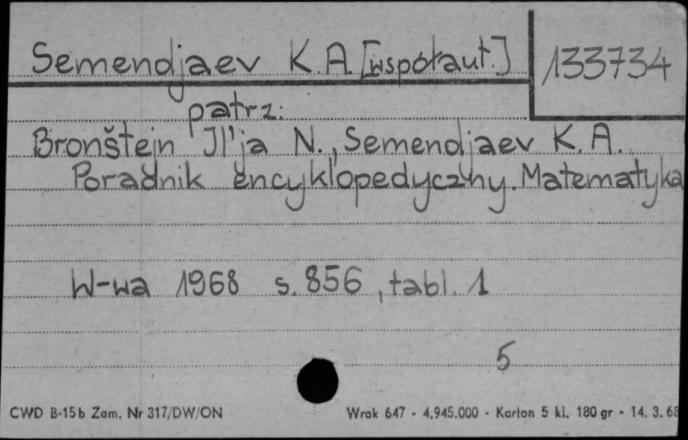 Semendjaev K.A. [współaut.] 133734
patrz:
Bronštein Il'ja N., Semendjaev K.A.
Poradnik encyklopedyczny. Matematyka
W-wa 1968 s. 856, tabl. 1
5
CWD B-15b Zam. Nr 317/DW/ON Wrak 647 - 4.945.000 - Karton 5 kl. 180 gr - 14. 3. 68